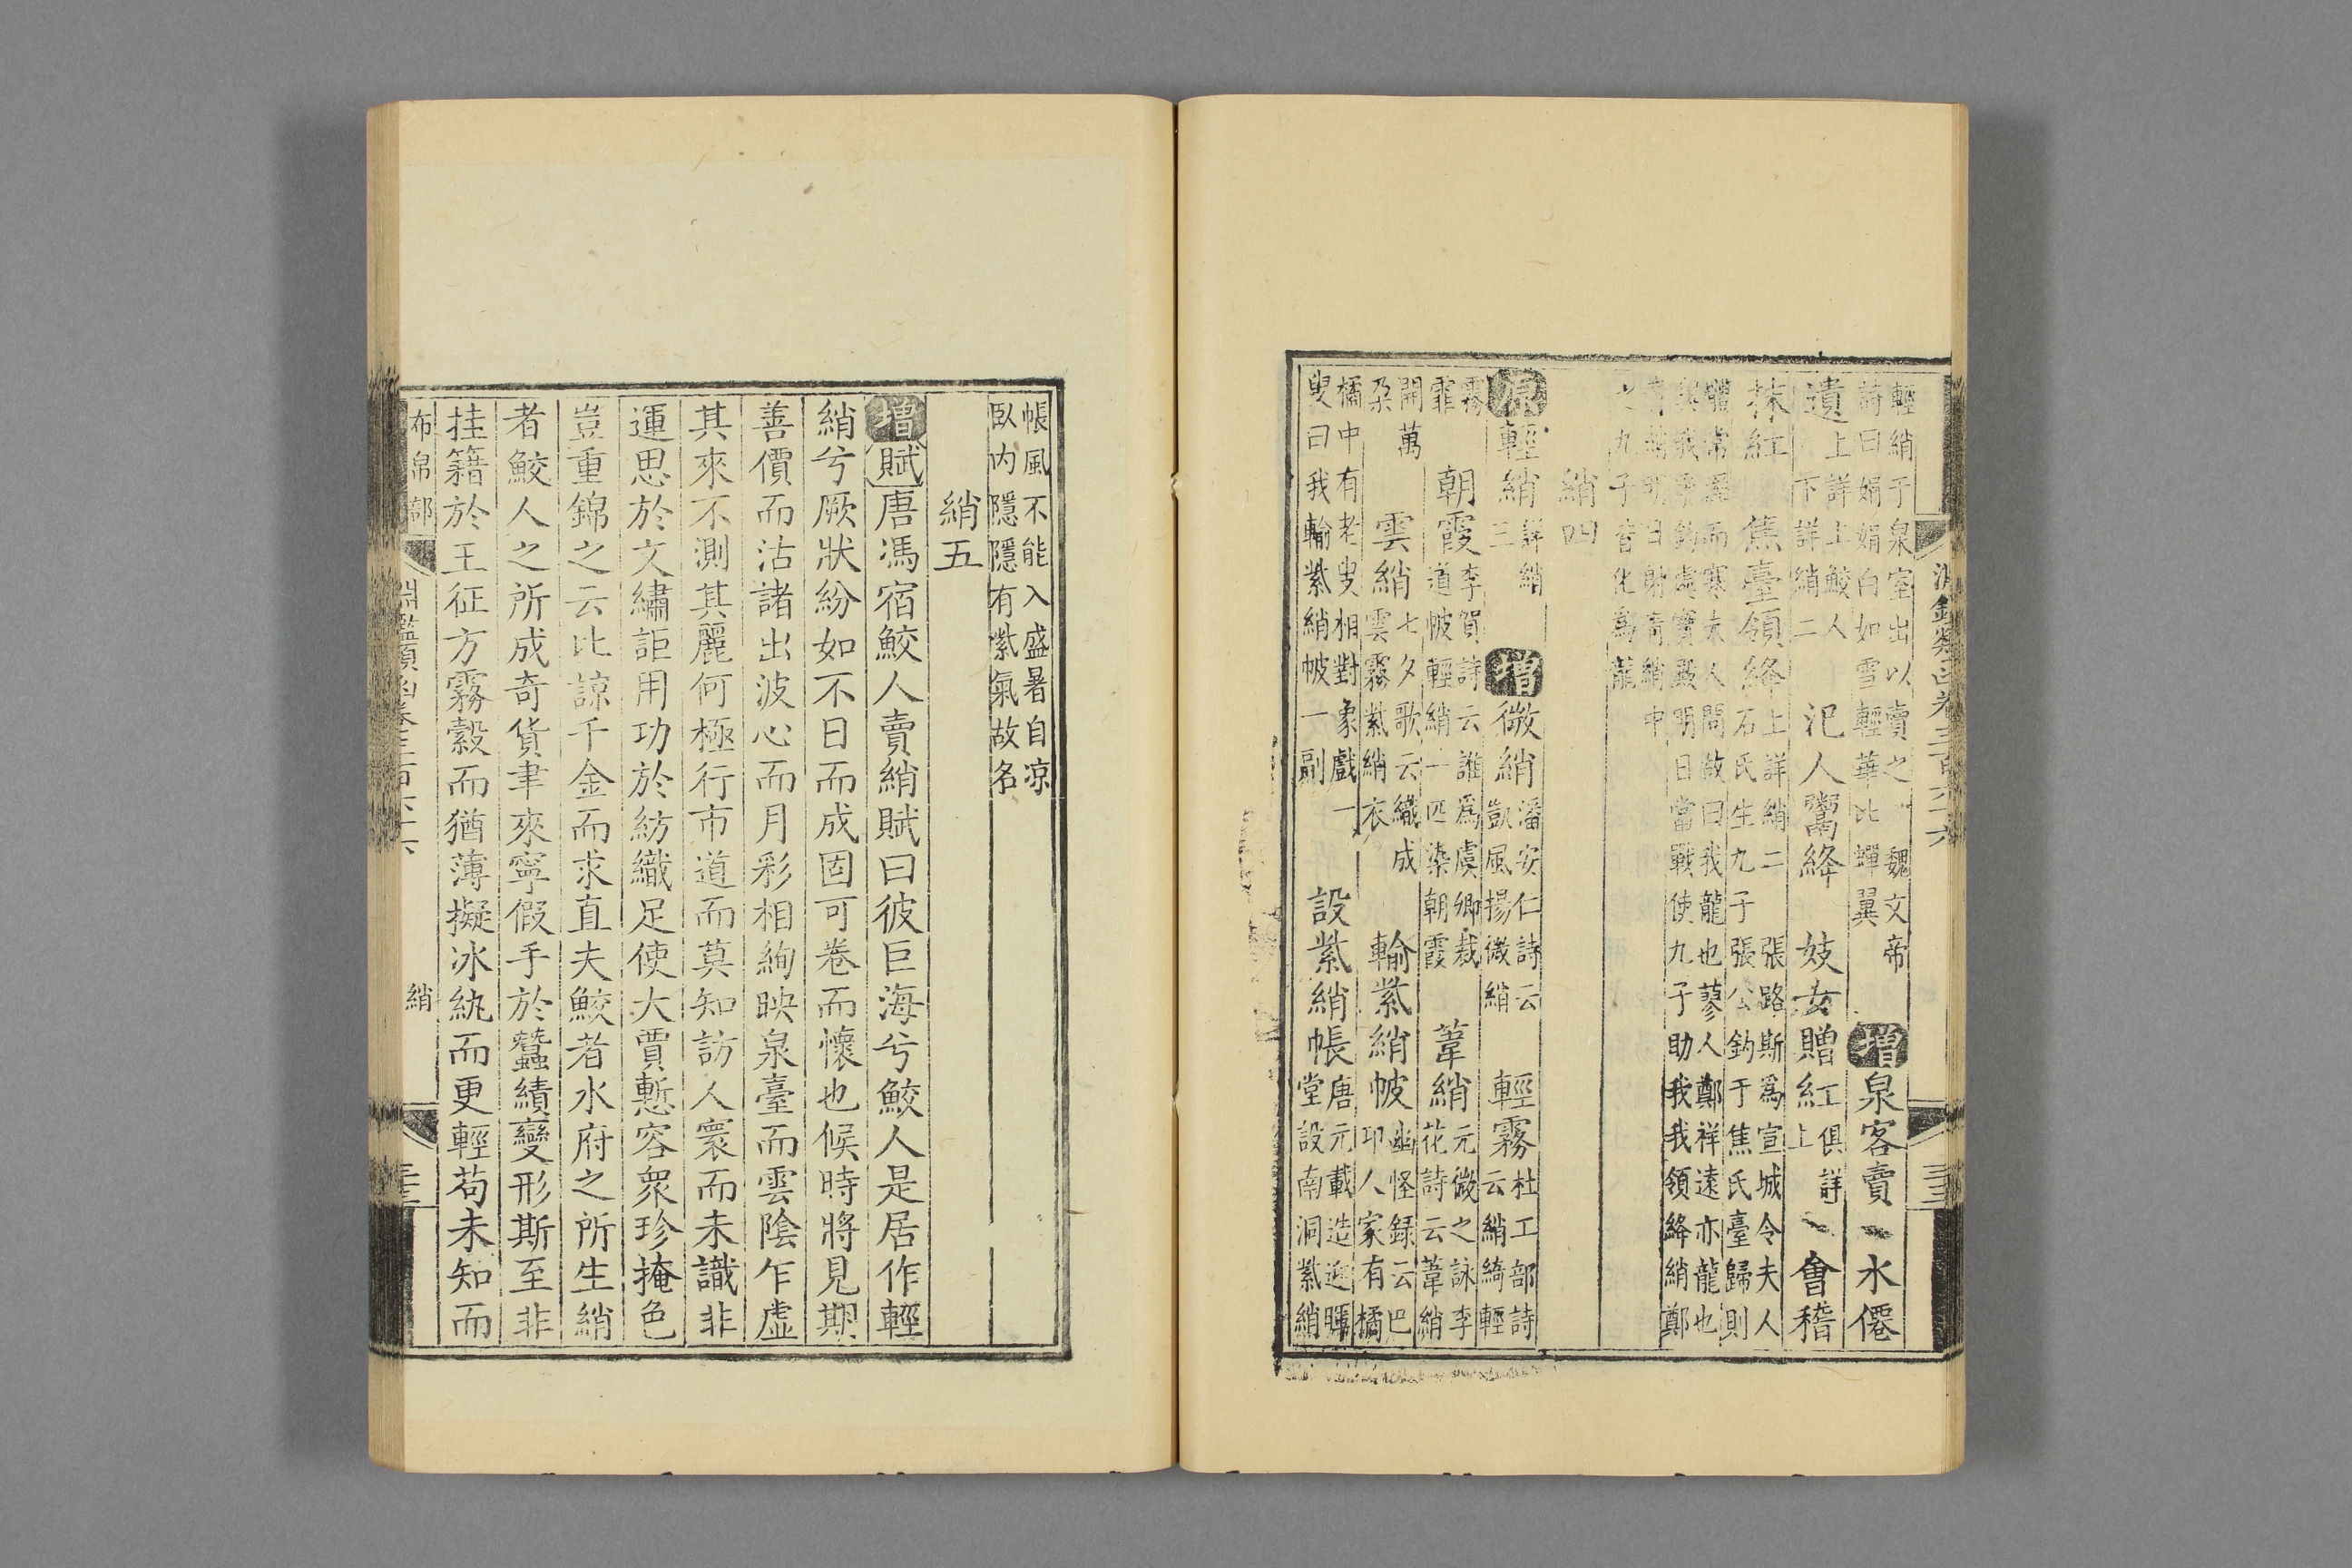 輕綃于泉室出以賣之 魏文帝
詩曰娟娟白如雪輕華比蟬翼
增泉客賣 水僊
遺上詳上鮫人
下詳綃二
汜人鬻絳 妓女贈紅俱詳上 會稽
抹紅 焦臺領絳上詳綃二 張路斯爲宣城令夫人
石氏生九子張公釣于焦氏臺歸則
體常濕而寒夫人問故曰我龍也蓼人鄭祥遠亦龍也
與我爭釣處寶殿明日當戰使九子助我我領絳綃鄭
青綃明日射青綃中
之九子皆化爲龍
綃四
原輕綃詳綃三 增微綃潘安仁詩云
凱風揚微綃 輕霧杜工部詩
云綃綺輕
霧霏 朝霞李賀詩云誰爲虞卿裁
道帔輕綃一匹染朝霞 葦綃元微之詠李
花詩云葦綃
開萬朶 雲綃七夕歌云織成
雲霧紫綃衣 輸紫綃帔幽怪録云巴
卭人家有橘
橘中有老叟相對象戲一
叟曰我輸紫綃帔一副 設紫綃帳唐元載造迎暉
堂設南洞紫綃
淵鑑類函卷三百六十六
帳風不能入盛暑自凉
臥內隱隱有紫氣故名
綃五
增賦唐馮宿鮫人賣綃賦曰彼巨海兮鮫人是居作輕
綃兮厥狀紛如不日而成固可卷而懷也候時將見期
善價而沽諸出波心而月彩相絢映泉臺而雲陰乍虛
其來不測其麗何極行市道而莫知訪人寰而未識非
運思於文繡詎用功於紡織足使大賈慙容衆珍掩色
豈重錦之云比諒千金而求直夫鮫者水府之所生綃
者鮫人之所成奇貨聿來寧假手於蠶績變形斯至非
挂籍於王征方霧縠而猶薄擬冰紈而更輕苟未知而
布帛部 淵鑑類函卷三百六十六 綃